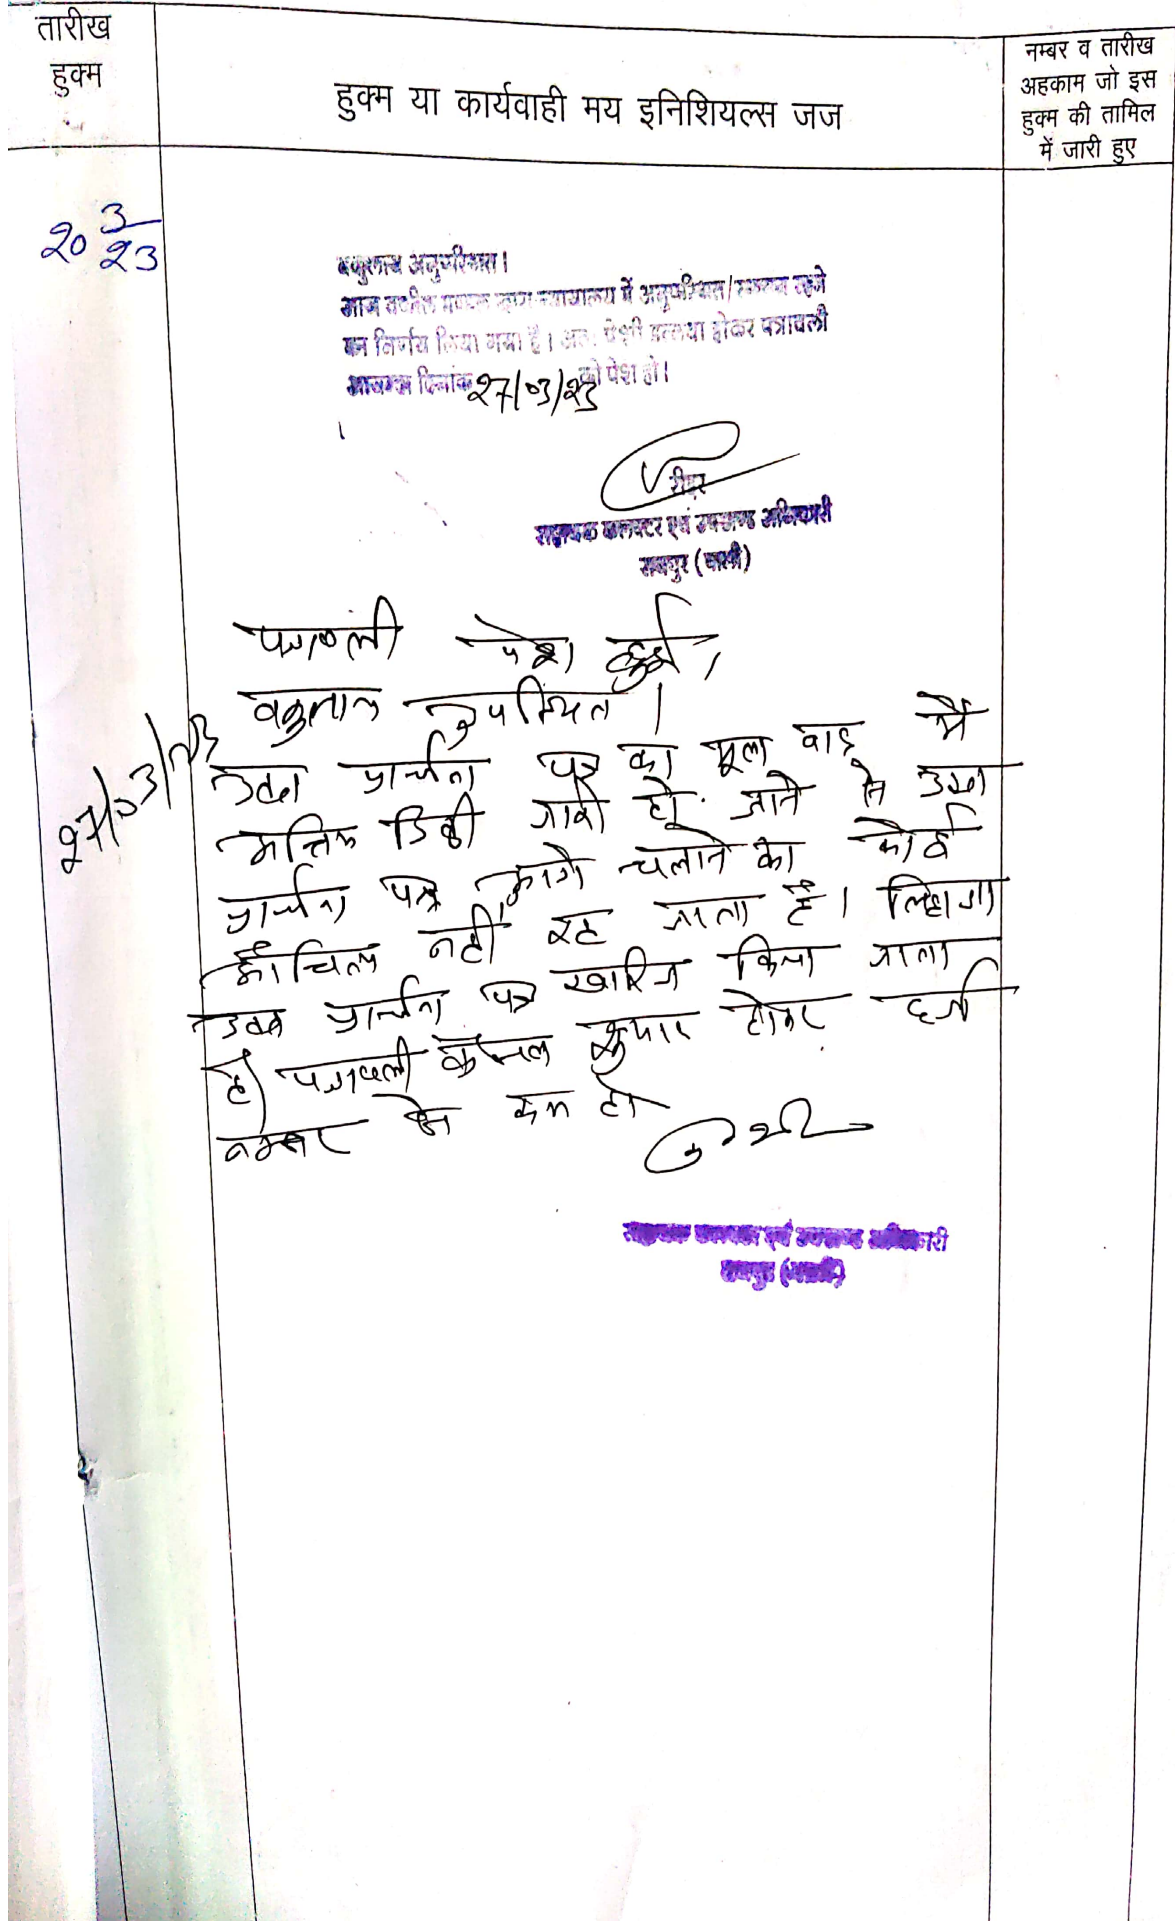 तारीख
हुक्म
हुक्म या कार्यवाही मय इनिशियल्स जज
नम्बर व तारीख
अहकाम जो इस
हुक्म की तामिल
में जारी हुए
20 3/23
वकुलाय अनुपस्थित।
आज वकील मण्डल द्वारा न्यायालय में अनुपस्थित/ रहने
का निर्णय लिया गया है। अतः पेशी होकर पत्रावली
दिनांक 27/03/23 को पेश हो।
रीडर
सहायक कलक्टर एवं उपखण्ड अधिकारी
रायपुर (पाली)
27/03/23
पत्रावली पेश हुई।
वकुलाय उपस्थित।
उक्त प्रार्थना पत्र का मूल वाद में
अन्तिम डिक्री जारी हो जाने से उक्त
प्रार्थना पत्र आगे चलाने का कोई
औचित्य नहीं रह जाता है। लिहाजा
उक्त प्रार्थना पत्र खारिज किया जाता
है। पत्रावली फैसल शुमार होकर दर्ज
नम्बर से कम हो
सहायक कलक्टर एवं उपखण्ड अधिकारी
रायपुर (पाली)